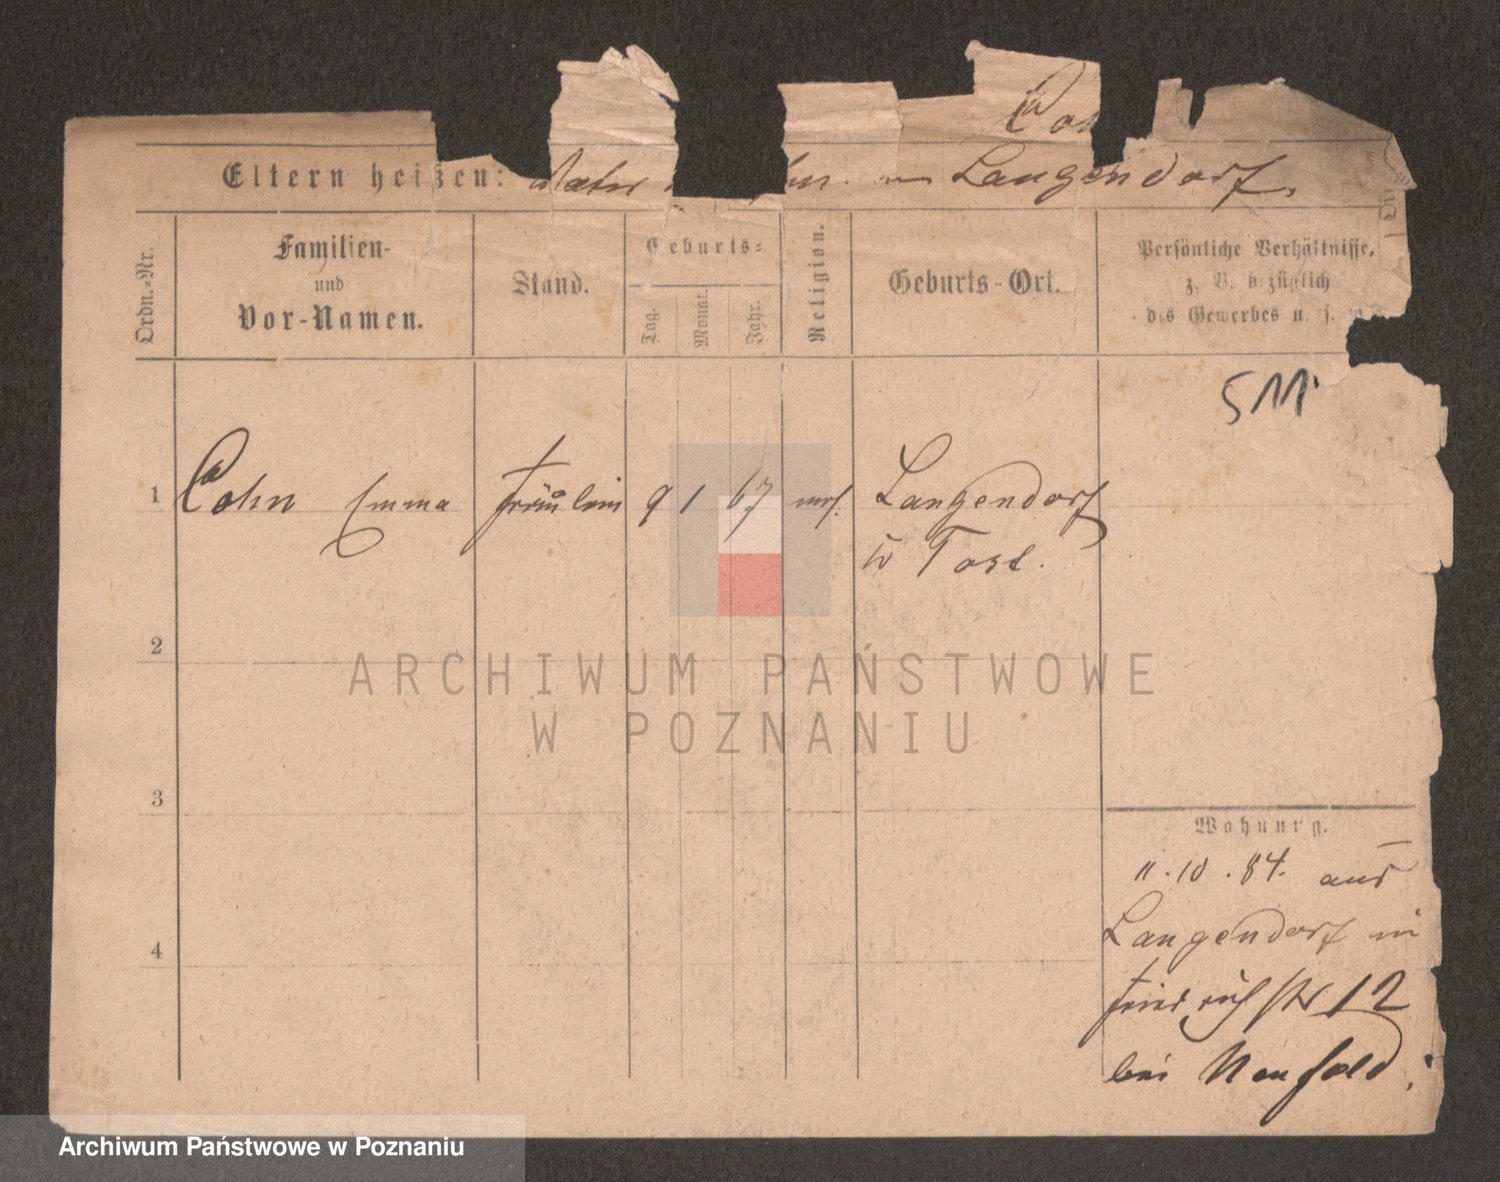 Co
Eltern heißen: Vater in Langendorf,
Ordn.-Nr.
Familien-
und
Vor-Namen.
Stand.
Geburts-
Tag.
Monat.
Jahr.
Religion.
Geburts-Ort.
Persönliche Verhältnisse,
z. B. bezüglich
des Gewerbes u. s. w.
511
1 Cohn Emma Fräulein 9 1 67 mos. Langendorf
Tost.
2
3
4
Wohnung.
11.10.84. aus
Langendorf in
Friedrichstr 12
bei Neufeld.
ARCHIWUM PAŃSTWOWE
W POZNANIU
Archiwum Państwowe w Poznaniu